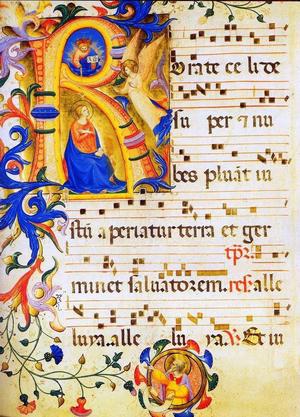 Rorate celi de
su per ⁊ nu
bes pluāt iu
stū aperiatur terra et ger
minet saluatorem. alle
luya. alle lu ya. ℣. Et iu